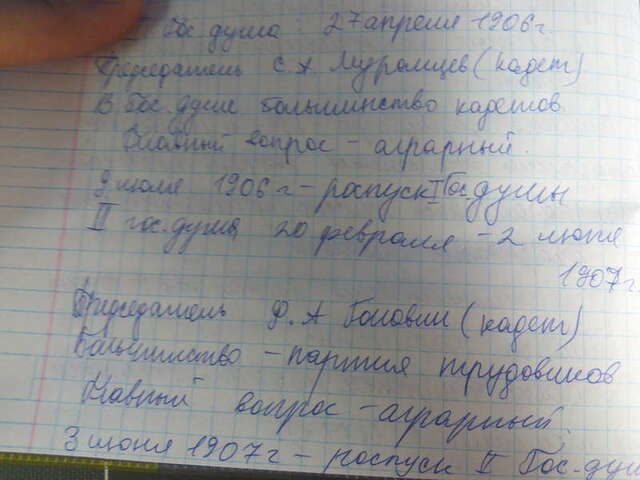 Гос. дума : 27 апреля 1906 г.
Председатель С А Муромцев (кадет)
В Гос. думе большинство кадетов
Главный вопрос – аграрный.
9 июля 1906 г – роспуск I Гос думы
II гос. дума 20 февраля – 2 июня
1907 г.
Председатель Ф. А Головин (кадет)
Большинство – партия трудовиков
Главный вопрос – аграрный,
3 июня 1907 г – роспуск II Гос. ду